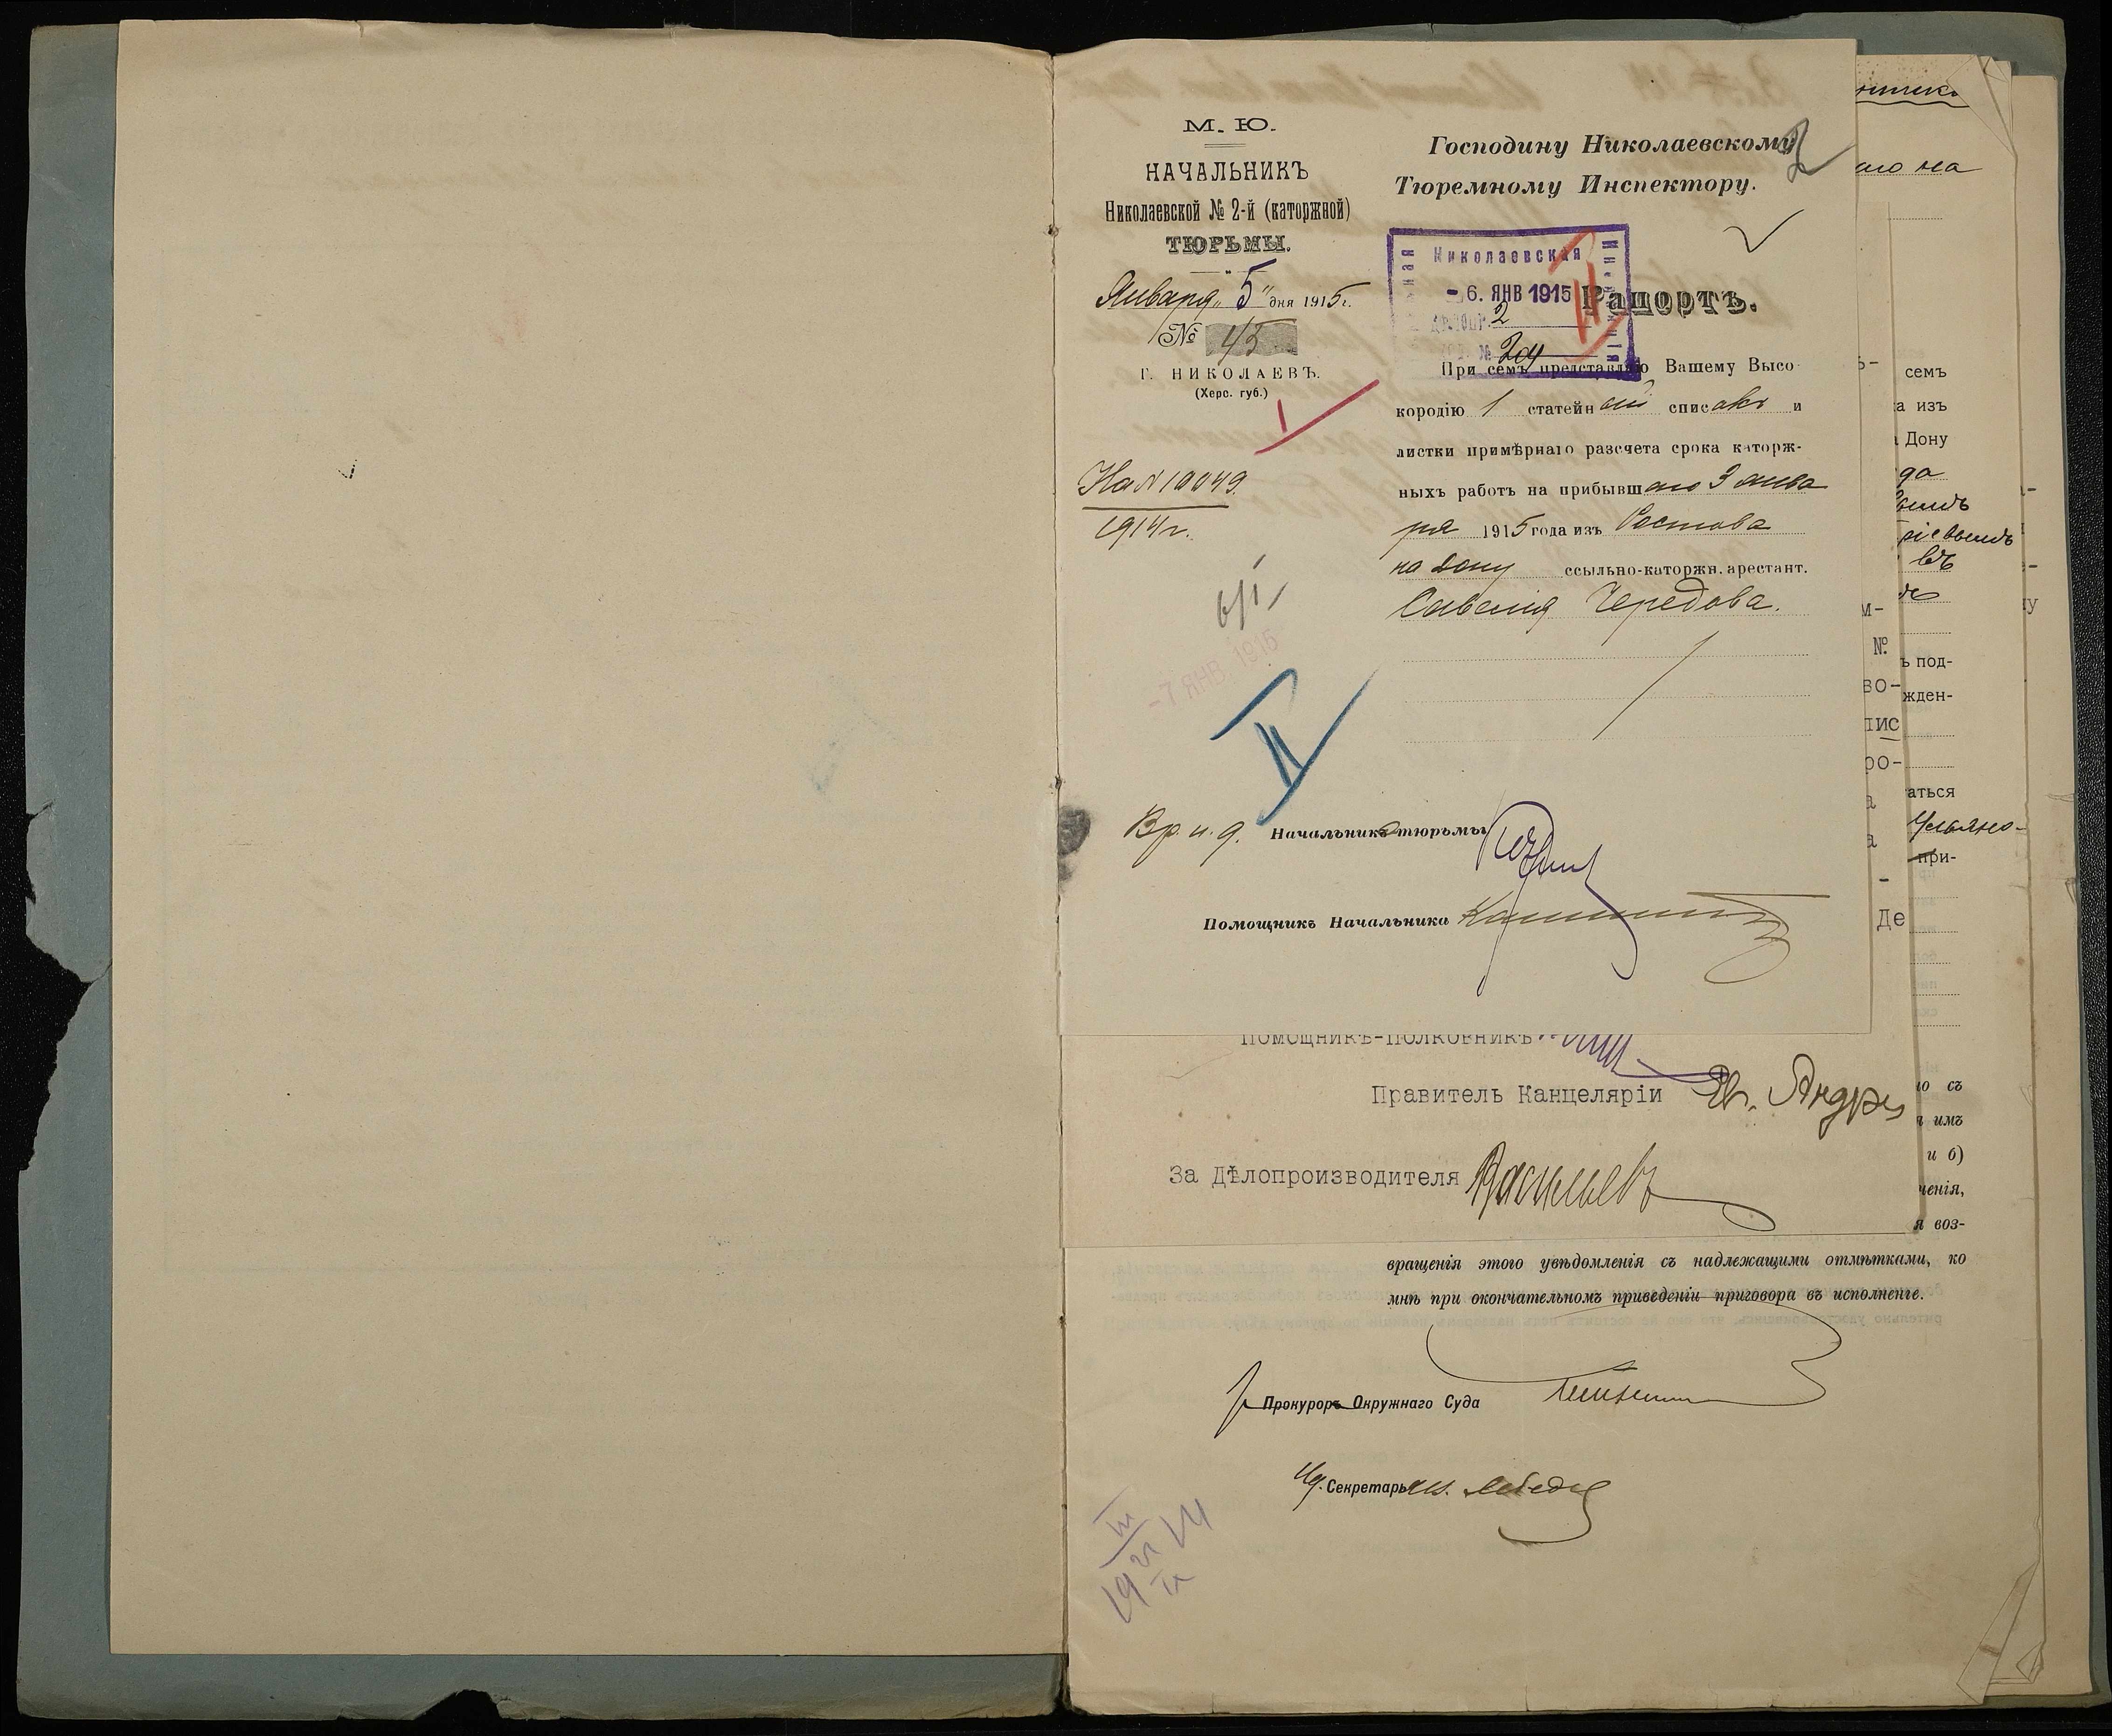 М. Ю.
НАЧАЛЬНИКЪ
Николаевской № 2-й (каторжной)
ТЮРЬМЫ.
Января „5“ дня 1915 г.
№ 45
Г. НИКОЛАЕВЪ.
(Херс. губ.)
На № 10049.
1914 г.
6/I
-7 ЯНВ 1915
Господину Николаевскому
Тюремному Инспектору.
2
Николаевская
- 6. ЯНВ 1915
2
№ 204
Рапортъ.
При семъ представляю Вашему Высо-
кородію 1 статейный списокъ и
листки примѣрнаго разсчета срока каторж-
ныхъ работъ на прибывшаго 3 янва
ря 1915 года изъ Ростова
на Дону ссыльно-каторжн. арестант.
Савелія Чередова.
Вр. и. д. Начальника тюрьмы
Помощникъ Начальника
Помощникъ-Полковникъ
Правитель Канцеляріи
За Дѣлопроизводителя Васильевъ
вращенія этого увѣдомленія съ надлежащими отмѣтками, ко
мнѣ при окончательномъ приведеніи приговора въ исполненіе.
Прокуроръ Окружнаго Суда
Ид. Секретарь
аго на
семъ
а изъ
Дону
да
въ
№
ъ под-
во-
жден-
пис
ро-
аться
Ульяно-
при-
Де
ю съ
я имъ
и б)
ченія,
я воз-